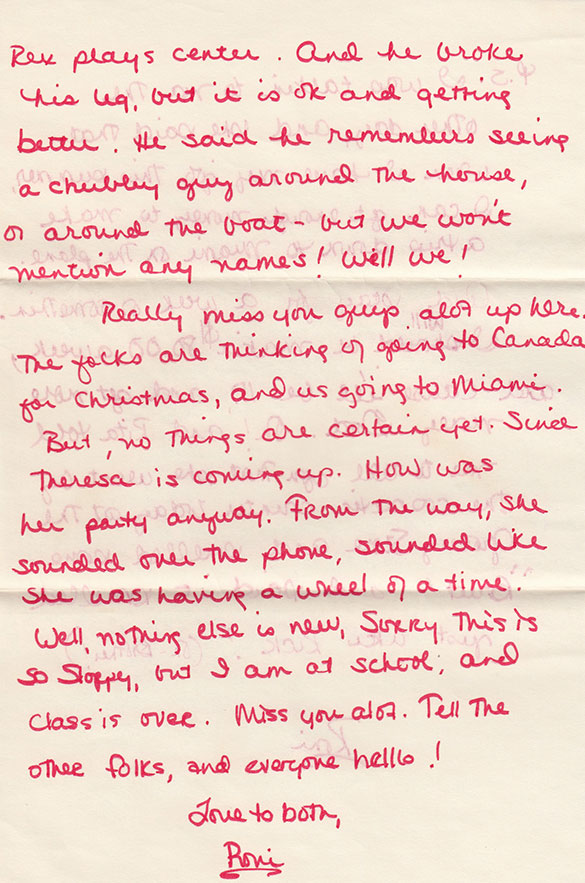 Rex plays center. And he broke
his leg, but it is ok and getting
better. He said he remembers seeing
a chubby guy around the house,
or around the boat - but we won't
mention any names! Will we!
Really miss you guys alot up here.
The folks are thinking of going to Canada
for Christmas, and us going to Miami.
But, no things are certain yet. Since
Theresa is coming up. How was
her party anyway. From the way, she
sounded over the phone, sounded like
she was having a wheel of a time.
Well, nothing else is new, Sorry this is
so Sloppy, but I am at school, and
class is over. Miss you alot. Tell the
other folks, and everyone hello!
Love to both,
Roni